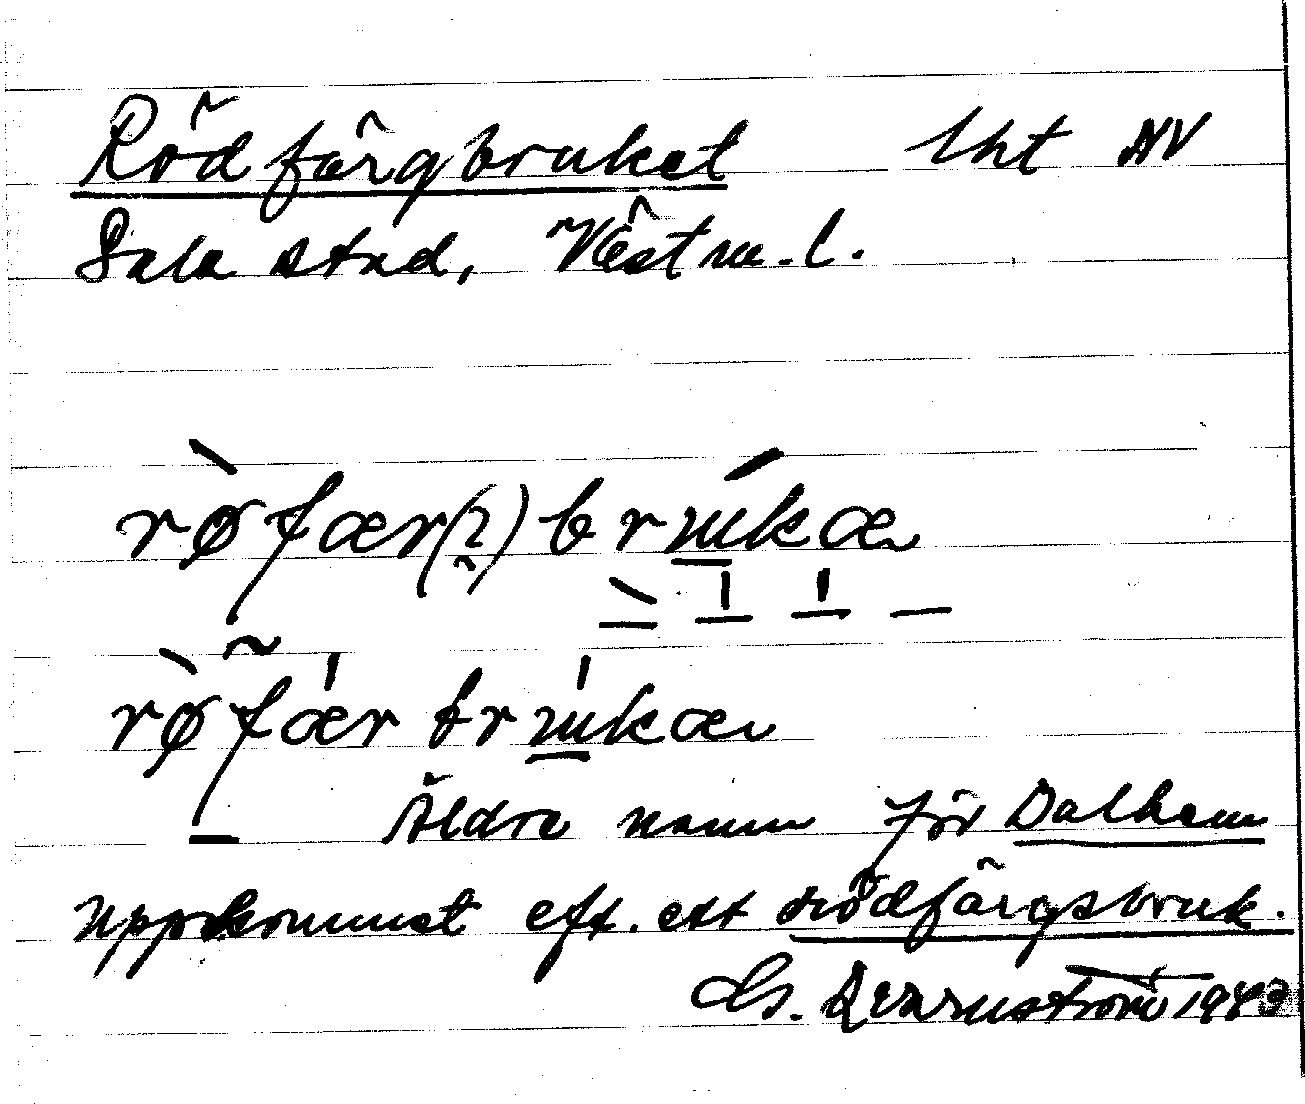 Rödfärgbruket lht NV
Sala stad, Västm.l.
rø̀fær(ɿ)brúkæ
rø̀fær brukæ
Äldre namn för Dalhem
Uppkommet eft. ett rödfärgsbruk.